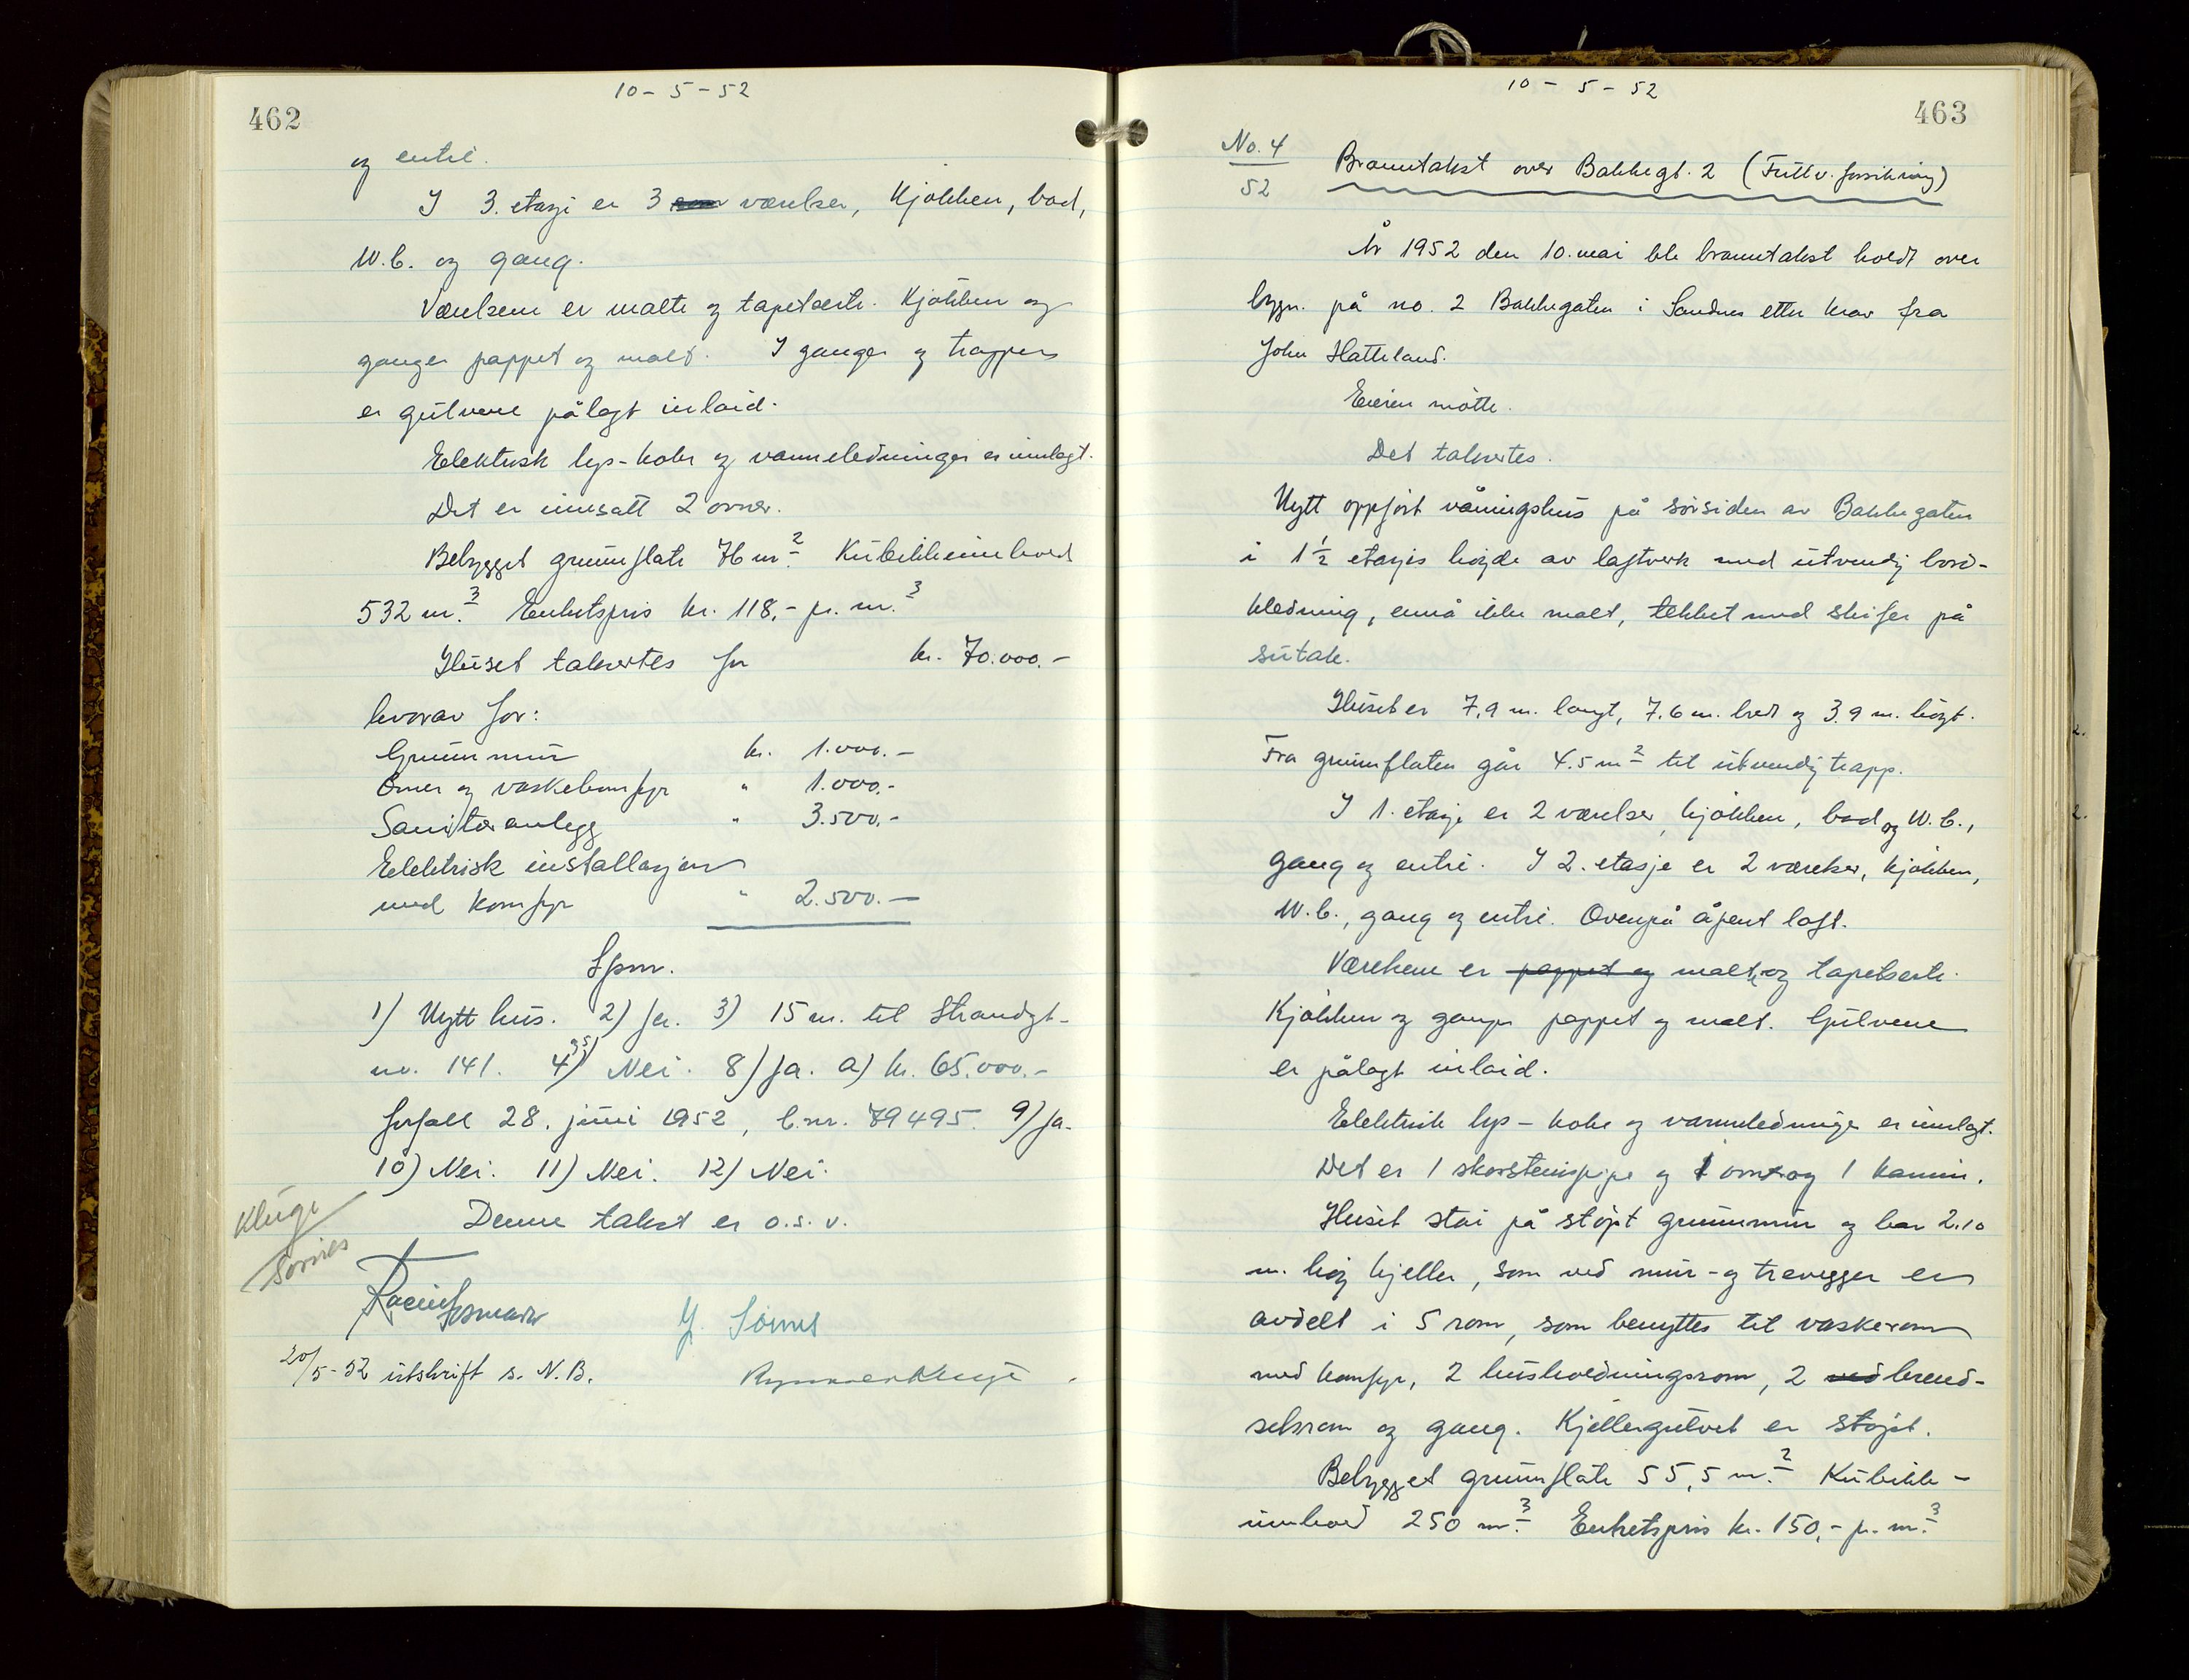 10-5-52
462
og entré.
I 3. etasje er 3 værelser, kjøkken, bad,
W.C. og gang.
Værelsene er malte og tapetserte. Kjøkken og
ganger pappet og malt. I ganger og trapper
er gulvene pålagt inlaid.
Elektrisk lys- koke og vannledninger er innlagt.
Det er innsatt 2 ovner.
Bebygget grunnflate 76 m². Kubikkinnhold
532 m.³ Enhetspris kr. 118,- pr. m.³
Huset takseres for kr. 70.000.-
hvorav for:
Grunnmur kr. 1.000.-
Ovner og vaskekomfyr " 1.000.-
Sanitæranlegg " 3.500.-
Elektrisk installasjon
med komfyr " 2.500.-
Spm.
1) Nytt hus. 2) Ja. 3) 15 m. til Strandgt.
no. 141. 4) Nei. 8) Ja. a) kr. 65.000.-
forfall 28. juni 1952, l.nr. 79495. 9) Ja.
10) Nei. 11) Nei. 12) Nei.
Kluge
Denne takst er o.s.v.
Sørnes
G. Sørnes
20/5-52 utskrift s. N.B.
10-5-52
463
No. 4
52
Branntakst over Bakkegt. 2 (Fullv. forsikring)
År 1952 den 10. mai ble branntakst holdt over
bygn. på no. 2 Bakkegaten i Sandnes etter krav fra
John Hatteland.
Eieren møtte.
Det takseres.
Nytt oppført våningshus på sørsiden av Bakkegaten
i 1½ etasjes høyde av laftverk med utvendig bord-
kledning, ennå ikke malt, tekket med skifer på
sutak.
Huset er 7,9 m. langt, 7.6 m. bredt og 3.9 m. høyt.
Fra grunnflaten går 4.5 m² til utvendig trapp.
I 1. etasje er 2 værelser, kjøkken, bad og W.C.,
gang og entré. I 2. etasje er 2 værelser, kjøkken,
W.C., gang og entré. Ovenpå åpent loft.
Værelsene er pappet og malte og tapetserte.
Kjøkken og ganger pappet og malt. Gulvene
er pålagt inlaid.
Elektrisk lys- koke og vannledninger er innlagt.
Det er 1 skorsteinspipe og 1 ovn og 1 kamin.
Huset står på støpt grunnmur og har 2.10
m. høy kjeller, som ved mur- og trevegger er
avdelt i 5 rom, som benyttes til vaskerom
med komfyr, 2 husholdningsrom, 2 ved brend-
selsrom og gang. Kjellergulvet er støpt.
Bebygget grunnflate 55,5 m.² Kubikk-
innhold 250 m.³ Enhetspris kr. 150,- pr. m.³